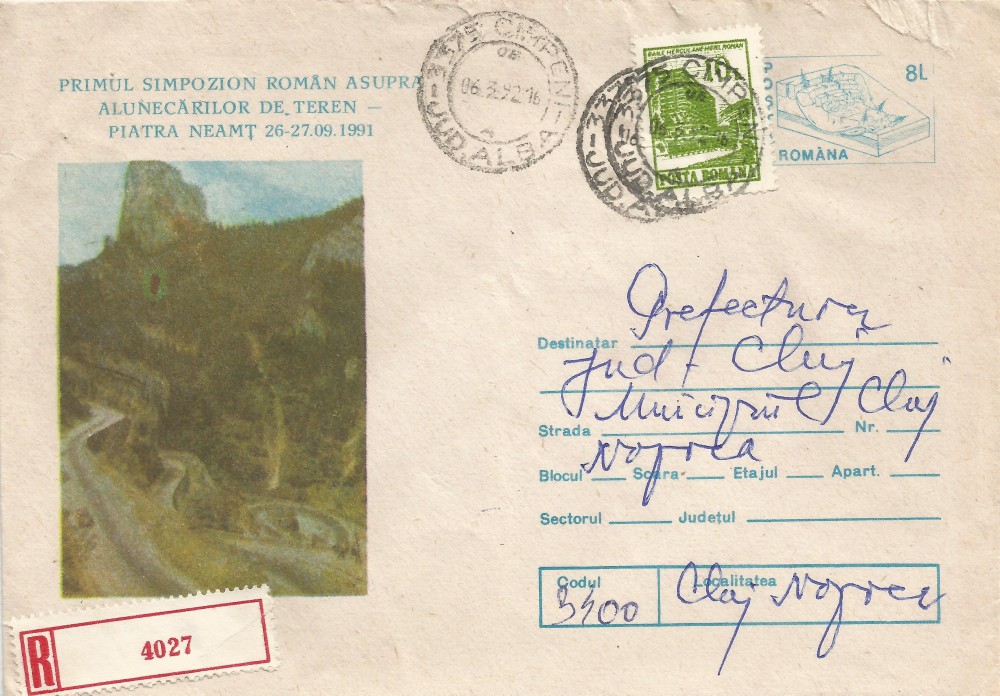 PRIMUL SIMPOZION ROMÂN ASUPRA
ALUNECĂRILOR DE TEREN —
PIATRA NEAMȚ 26-27.09.1991
3375 CIMPENI
06.3.92.16
A
JUD. ALBA
BAILE HERCULANE-HOTEL ROMAN
10L
POSTA ROMANA
3375 CIMPENI
JUD. ALBA
8L
ROMÂNA
Prefectura
Destinatar
Jud. Cluj
Municipiul Cluj
Strada Nr.
Napoca
Blocul Scara Etajul Apart.
Sectorul Județul
Codul Localitatea
3400 Cluj Napoca
R 4027